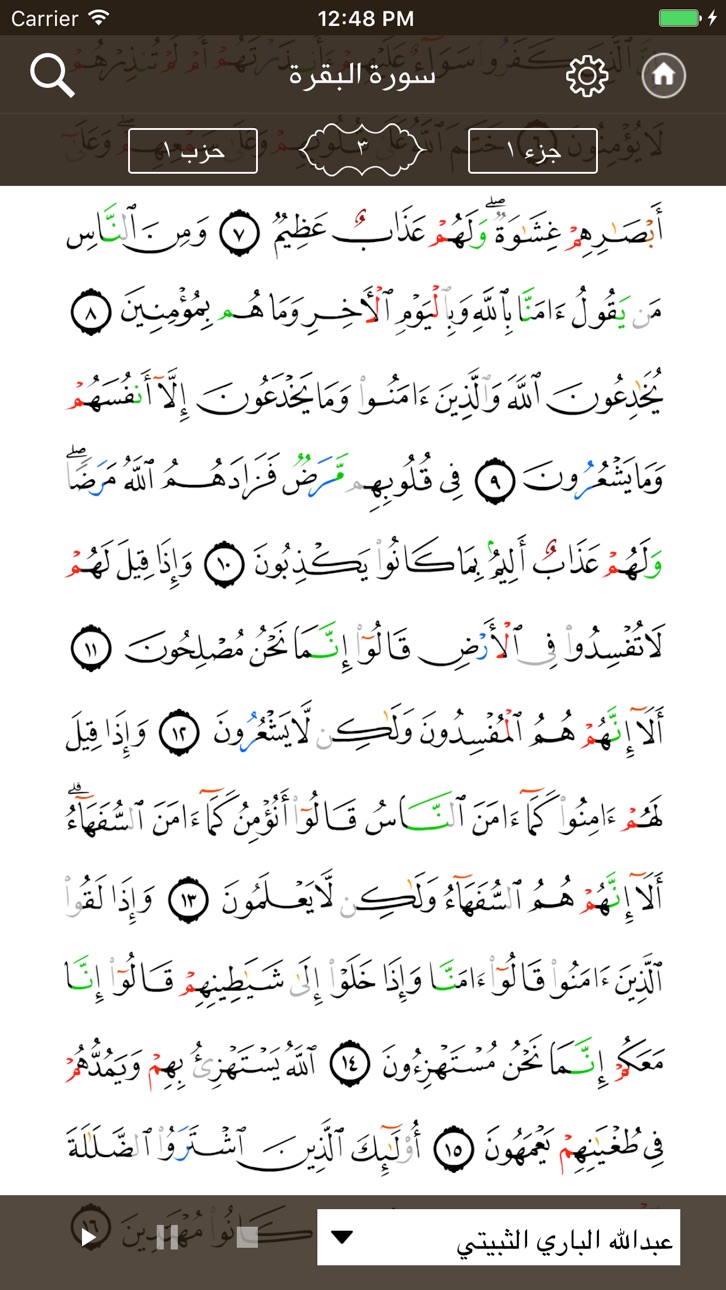 Carrier 12:48 PM
إِنَّ ٱلَّذِينَ كَفَرُوا۟ سَوَآءٌ عَلَيْهِمْ ءَأَنذَرْتَهُمْ أَمْ لَمْ تُنذِرْهُمْ
سورة البقرة
لَا يُؤْمِنُونَ ٦ خَتَمَ ٱللَّهُ عَلَىٰ قُلُوبِهِمْ وَعَلَىٰ سَمْعِهِمْ ۖ وَعَلَىٰٓ
جزء ١ ٣ حزب ١
أَبْصَٰرِهِمْ غِشَٰوَةٌ ۖ وَلَهُمْ عَذَابٌ عَظِيمٌ ٧ وَمِنَ ٱلنَّاسِ
مَن يَقُولُ ءَامَنَّا بِٱللَّهِ وَبِٱلْيَوْمِ ٱلْأَخِرِ وَمَا هُم بِمُؤْمِنِينَ ٨
يُخَٰدِعُونَ ٱللَّهَ وَٱلَّذِينَ ءَامَنُوا۟ وَمَا يَخْدَعُونَ إِلَّآ أَنفُسَهُمْ
وَمَا يَشْعُرُونَ ٩ فِى قُلُوبِهِم مَّرَضٌ فَزَادَهُمُ ٱللَّهُ مَرَضًا ۖ
وَلَهُمْ عَذَابٌ أَلِيمٌۢ بِمَا كَانُوا۟ يَكْذِبُونَ ١٠ وَإِذَا قِيلَ لَهُمْ
لَا تُفْسِدُوا۟ فِى ٱلْأَرْضِ قَالُوٓا۟ إِنَّمَا نَحْنُ مُصْلِحُونَ ١١
أَلَآ إِنَّهُمْ هُمُ ٱلْمُفْسِدُونَ وَلَٰكِن لَّا يَشْعُرُونَ ١٢ وَإِذَا قِيلَ
لَهُمْ ءَامِنُوا۟ كَمَآ ءَامَنَ ٱلنَّاسُ قَالُوٓا۟ أَنُؤْمِنُ كَمَآ ءَامَنَ ٱلسُّفَهَآءُ ۗ
أَلَآ إِنَّهُمْ هُمُ ٱلسُّفَهَآءُ وَلَٰكِن لَّا يَعْلَمُونَ ١٣ وَإِذَا لَقُوا۟
ٱلَّذِينَ ءَامَنُوا۟ قَالُوٓا۟ ءَامَنَّا وَإِذَا خَلَوْا۟ إِلَىٰ شَيَٰطِينِهِمْ قَالُوٓا۟ إِنَّا
مَعَكُمْ إِنَّمَا نَحْنُ مُسْتَهْزِءُونَ ١٤ ٱللَّهُ يَسْتَهْزِئُ بِهِمْ وَيَمُدُّهُمْ
فِى طُغْيَٰنِهِمْ يَعْمَهُونَ ١٥ أُو۟لَٰٓئِكَ ٱلَّذِينَ ٱشْتَرَوُا۟ ٱلضَّلَٰلَةَ
كَانُوا۟ مُهْتَدِينَ ١٦
عبدالله الباري الثبيتي